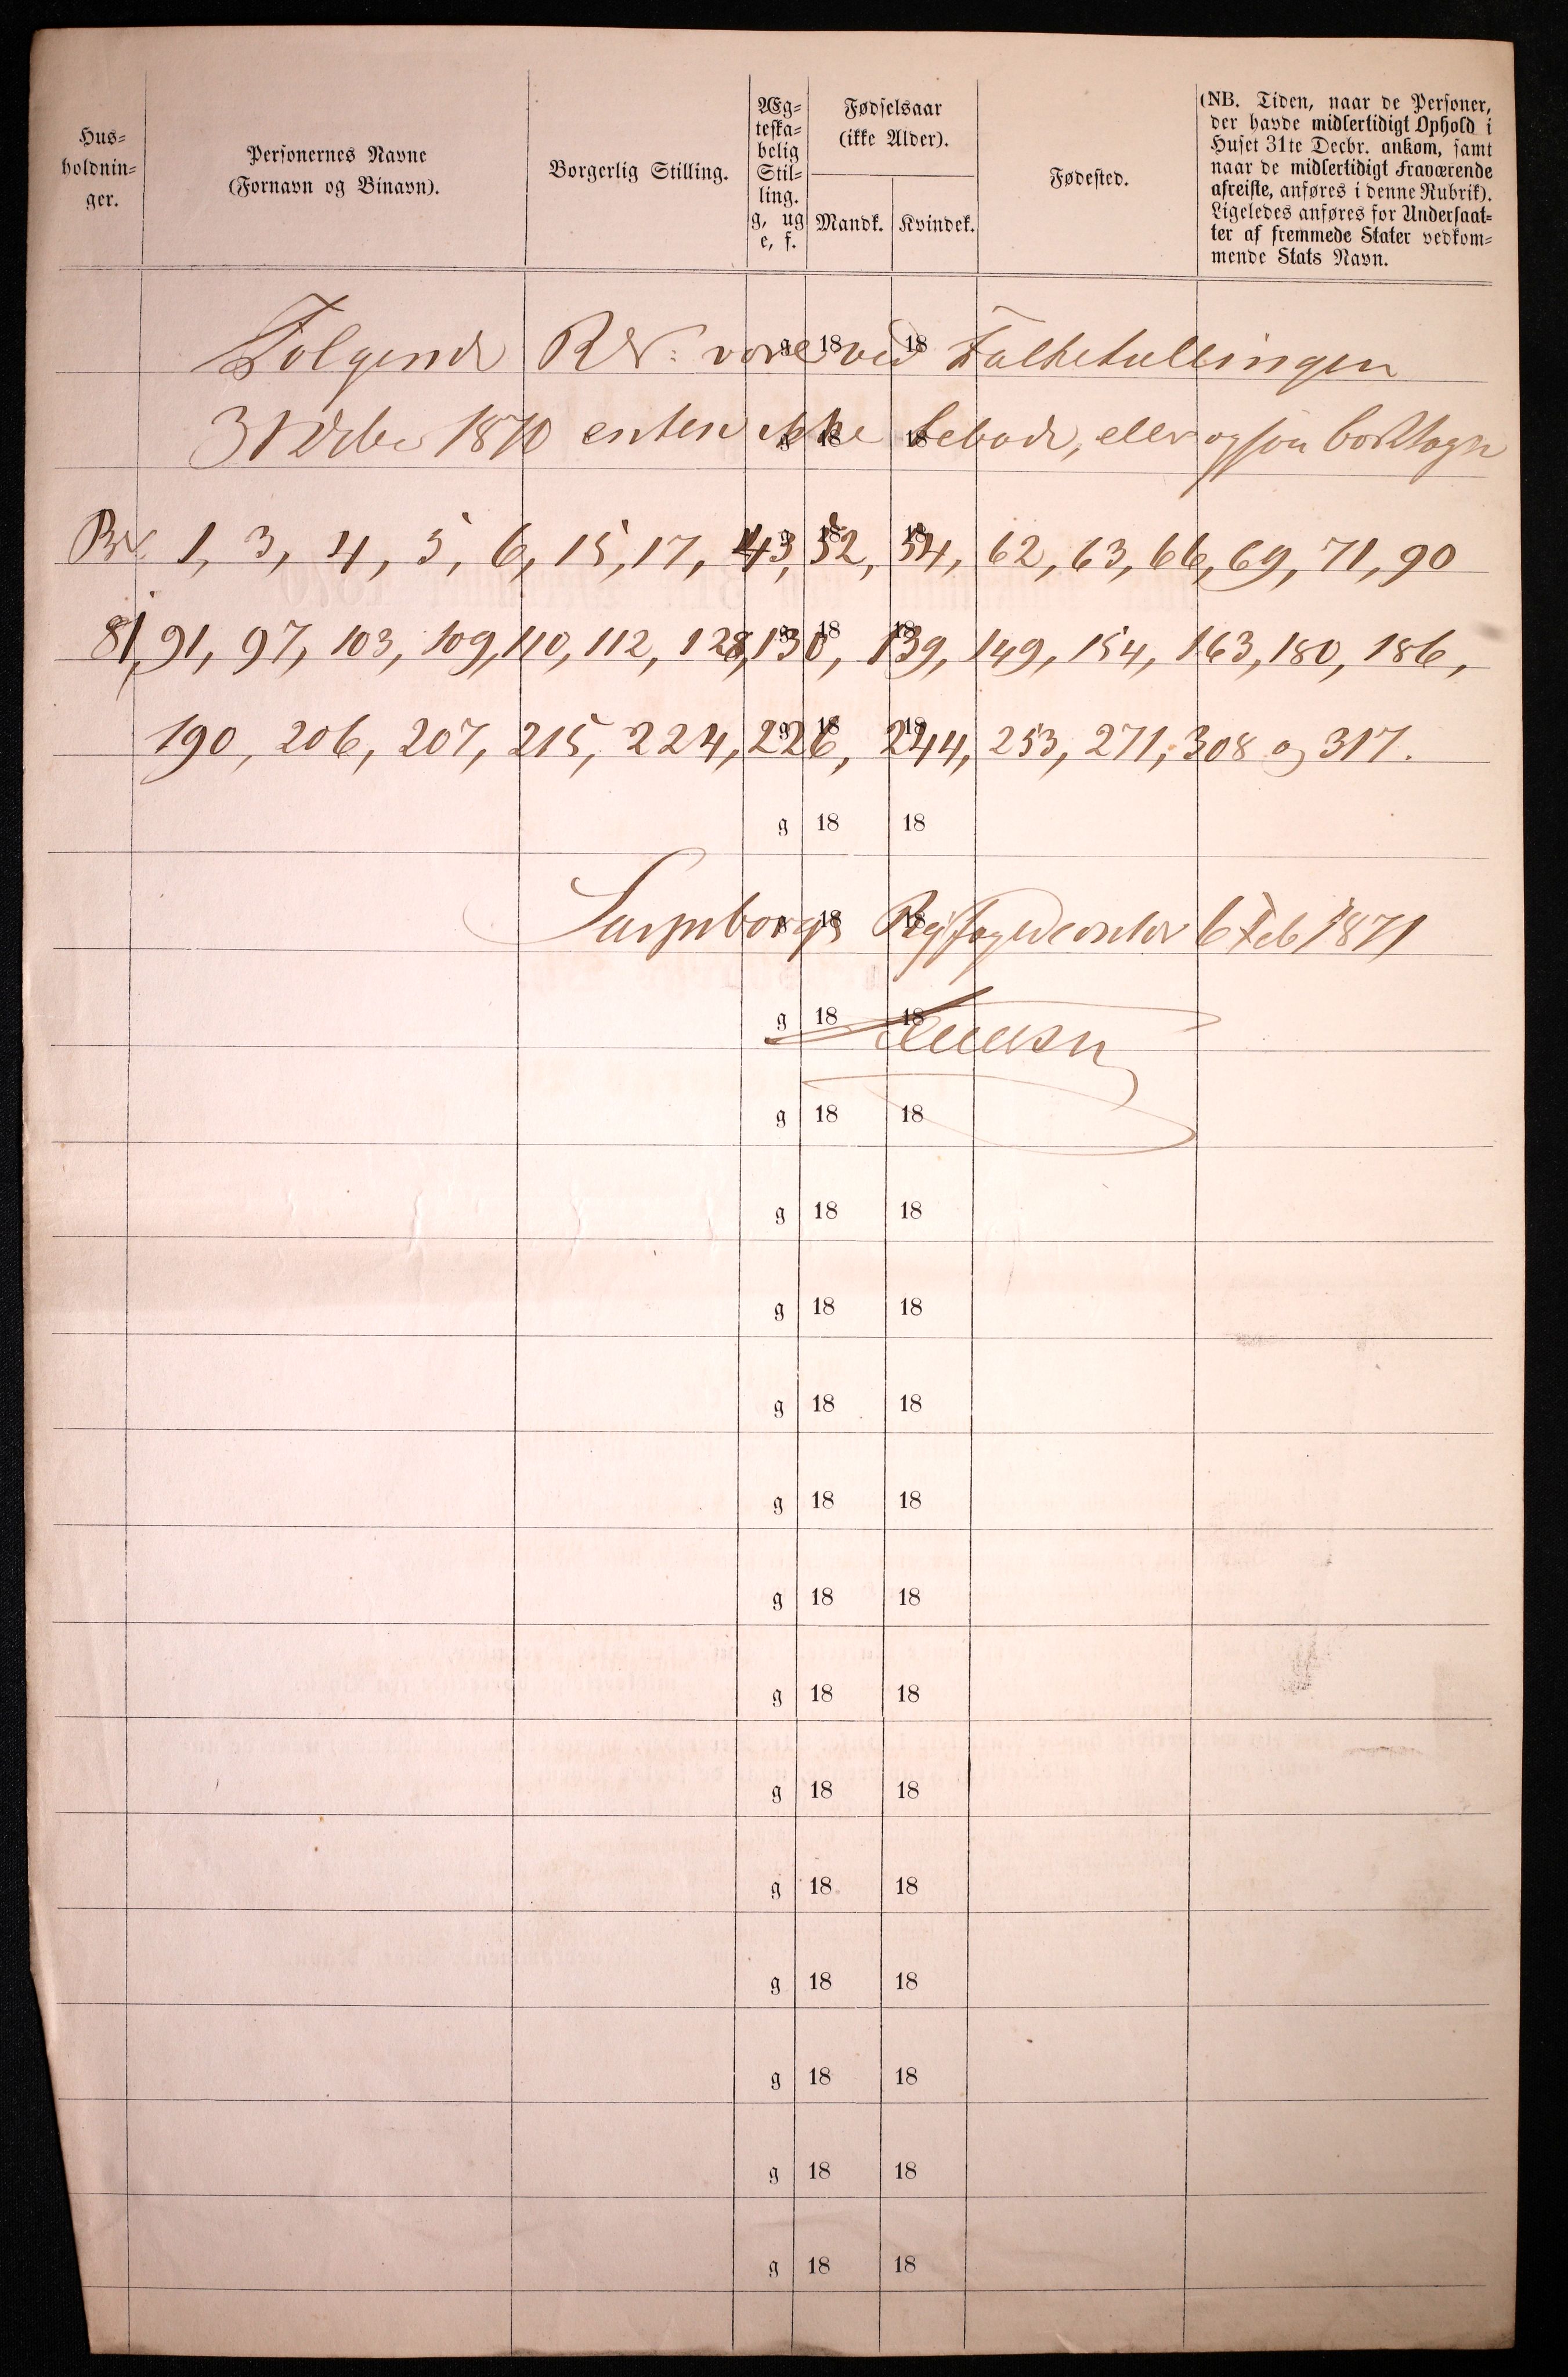 Hus=
holdnin=
ger.
Personernes Navne
(Fornavn og Binavn).
Borgerlig Stilling.
Æg=
teska=
belig
Stil=
ling.
g, ug
e, f.
Fødselsaar
(ikke Alder).
Mandk.
Kvindek.
Fødested.
(NB. Tiden, naar de Personer,
der havde midlertidigt Ophold i
Huset 31te Decbr. ankom, samt
naar de midlertidigt Fraværende
afreiste, anføres i denne Rubrik).
Ligeledes anføres for Undersaat=
ter af fremmede Stater vedkom=
mende Stats Navn.
Følgende vare ved Folketællingen
31 Decbr 1870 enten ikke beboede, eller ogsaa
1, 3, 4, 5, 6, 15, 17, 43, 52, 54, 62, 63, 66, 69, 71, 90
81, 91, 97, 103, 109, 110, 112, 128, 130, 139, 149, 154, 163, 180, 186,
190, 206, 207, 215, 224, 226, 244, 253, 271, 308 og 317.
g 18 18
Sarpsborgs 6 Feb 1871
g 18 18
g 18 18
g 18 18
g 18 18
g 18 18
g 18 18
g 18 18
g 18 18
g 18 18
g 18 18
g 18 18
g 18 18
g 18 18
g 18 18